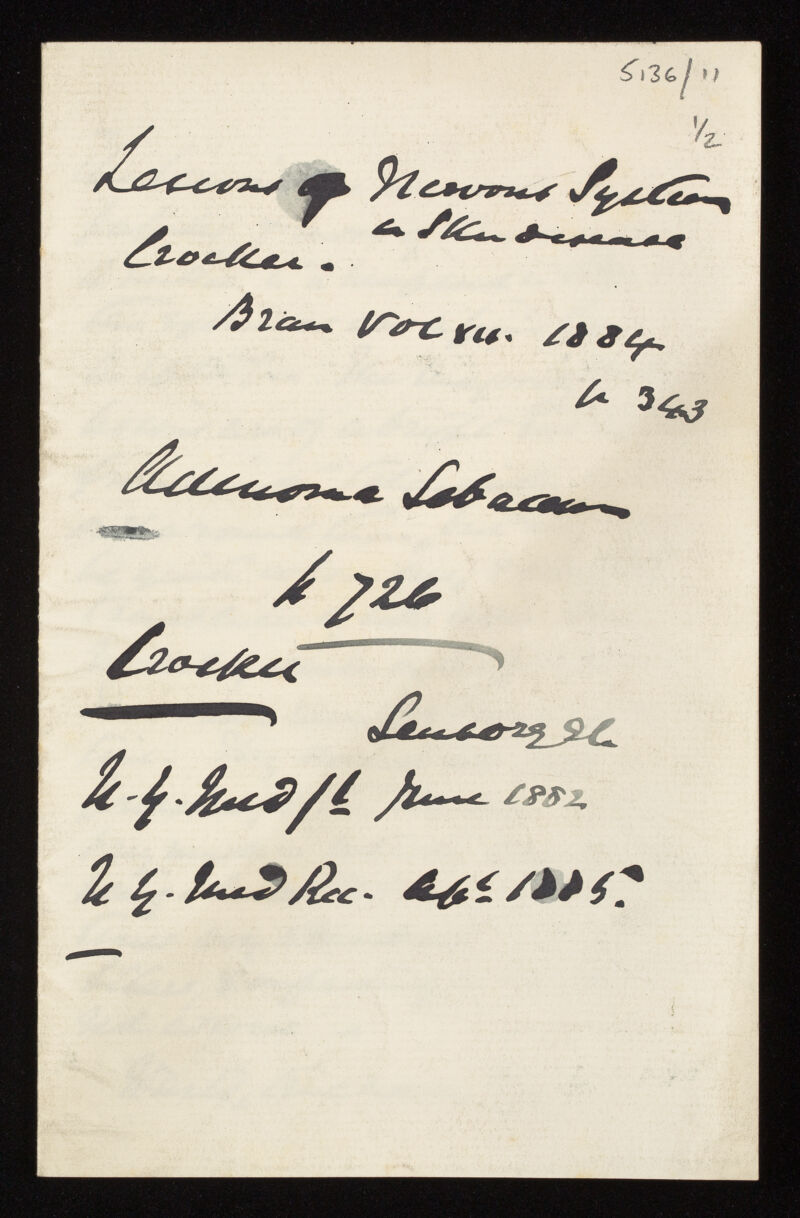 5136/11
1/2
Lesions of Nervous System
in Skin disease
Crocker.
Brain Vol XII. 1884
p 343
Adenoma Sebaceum
p 726
Crocker
N. Y. Med Jl June 1882
N Y. Med Rec. 1885.